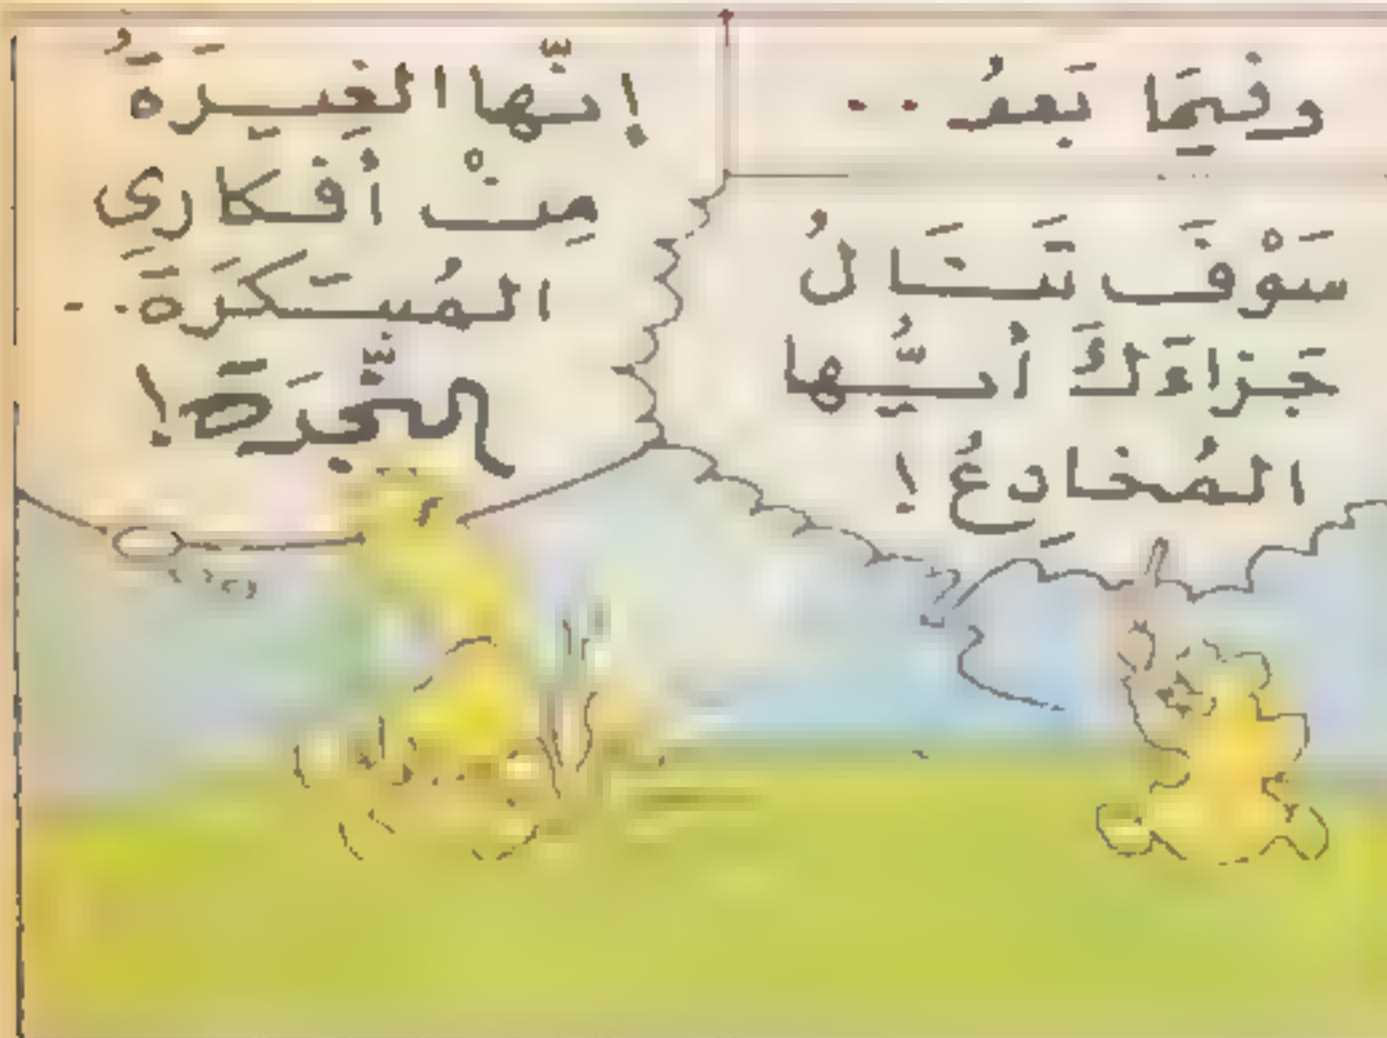 وفِيمَا بَعدُ ..
سَوْفَ تَنَالُ
جَزَاءَكَ أيُّها
المُخادِعُ !
إنّها الغِيرَةُ
مِنْ أفكارى
المُبتَكرَةَ ..
النَّيِّرَة !